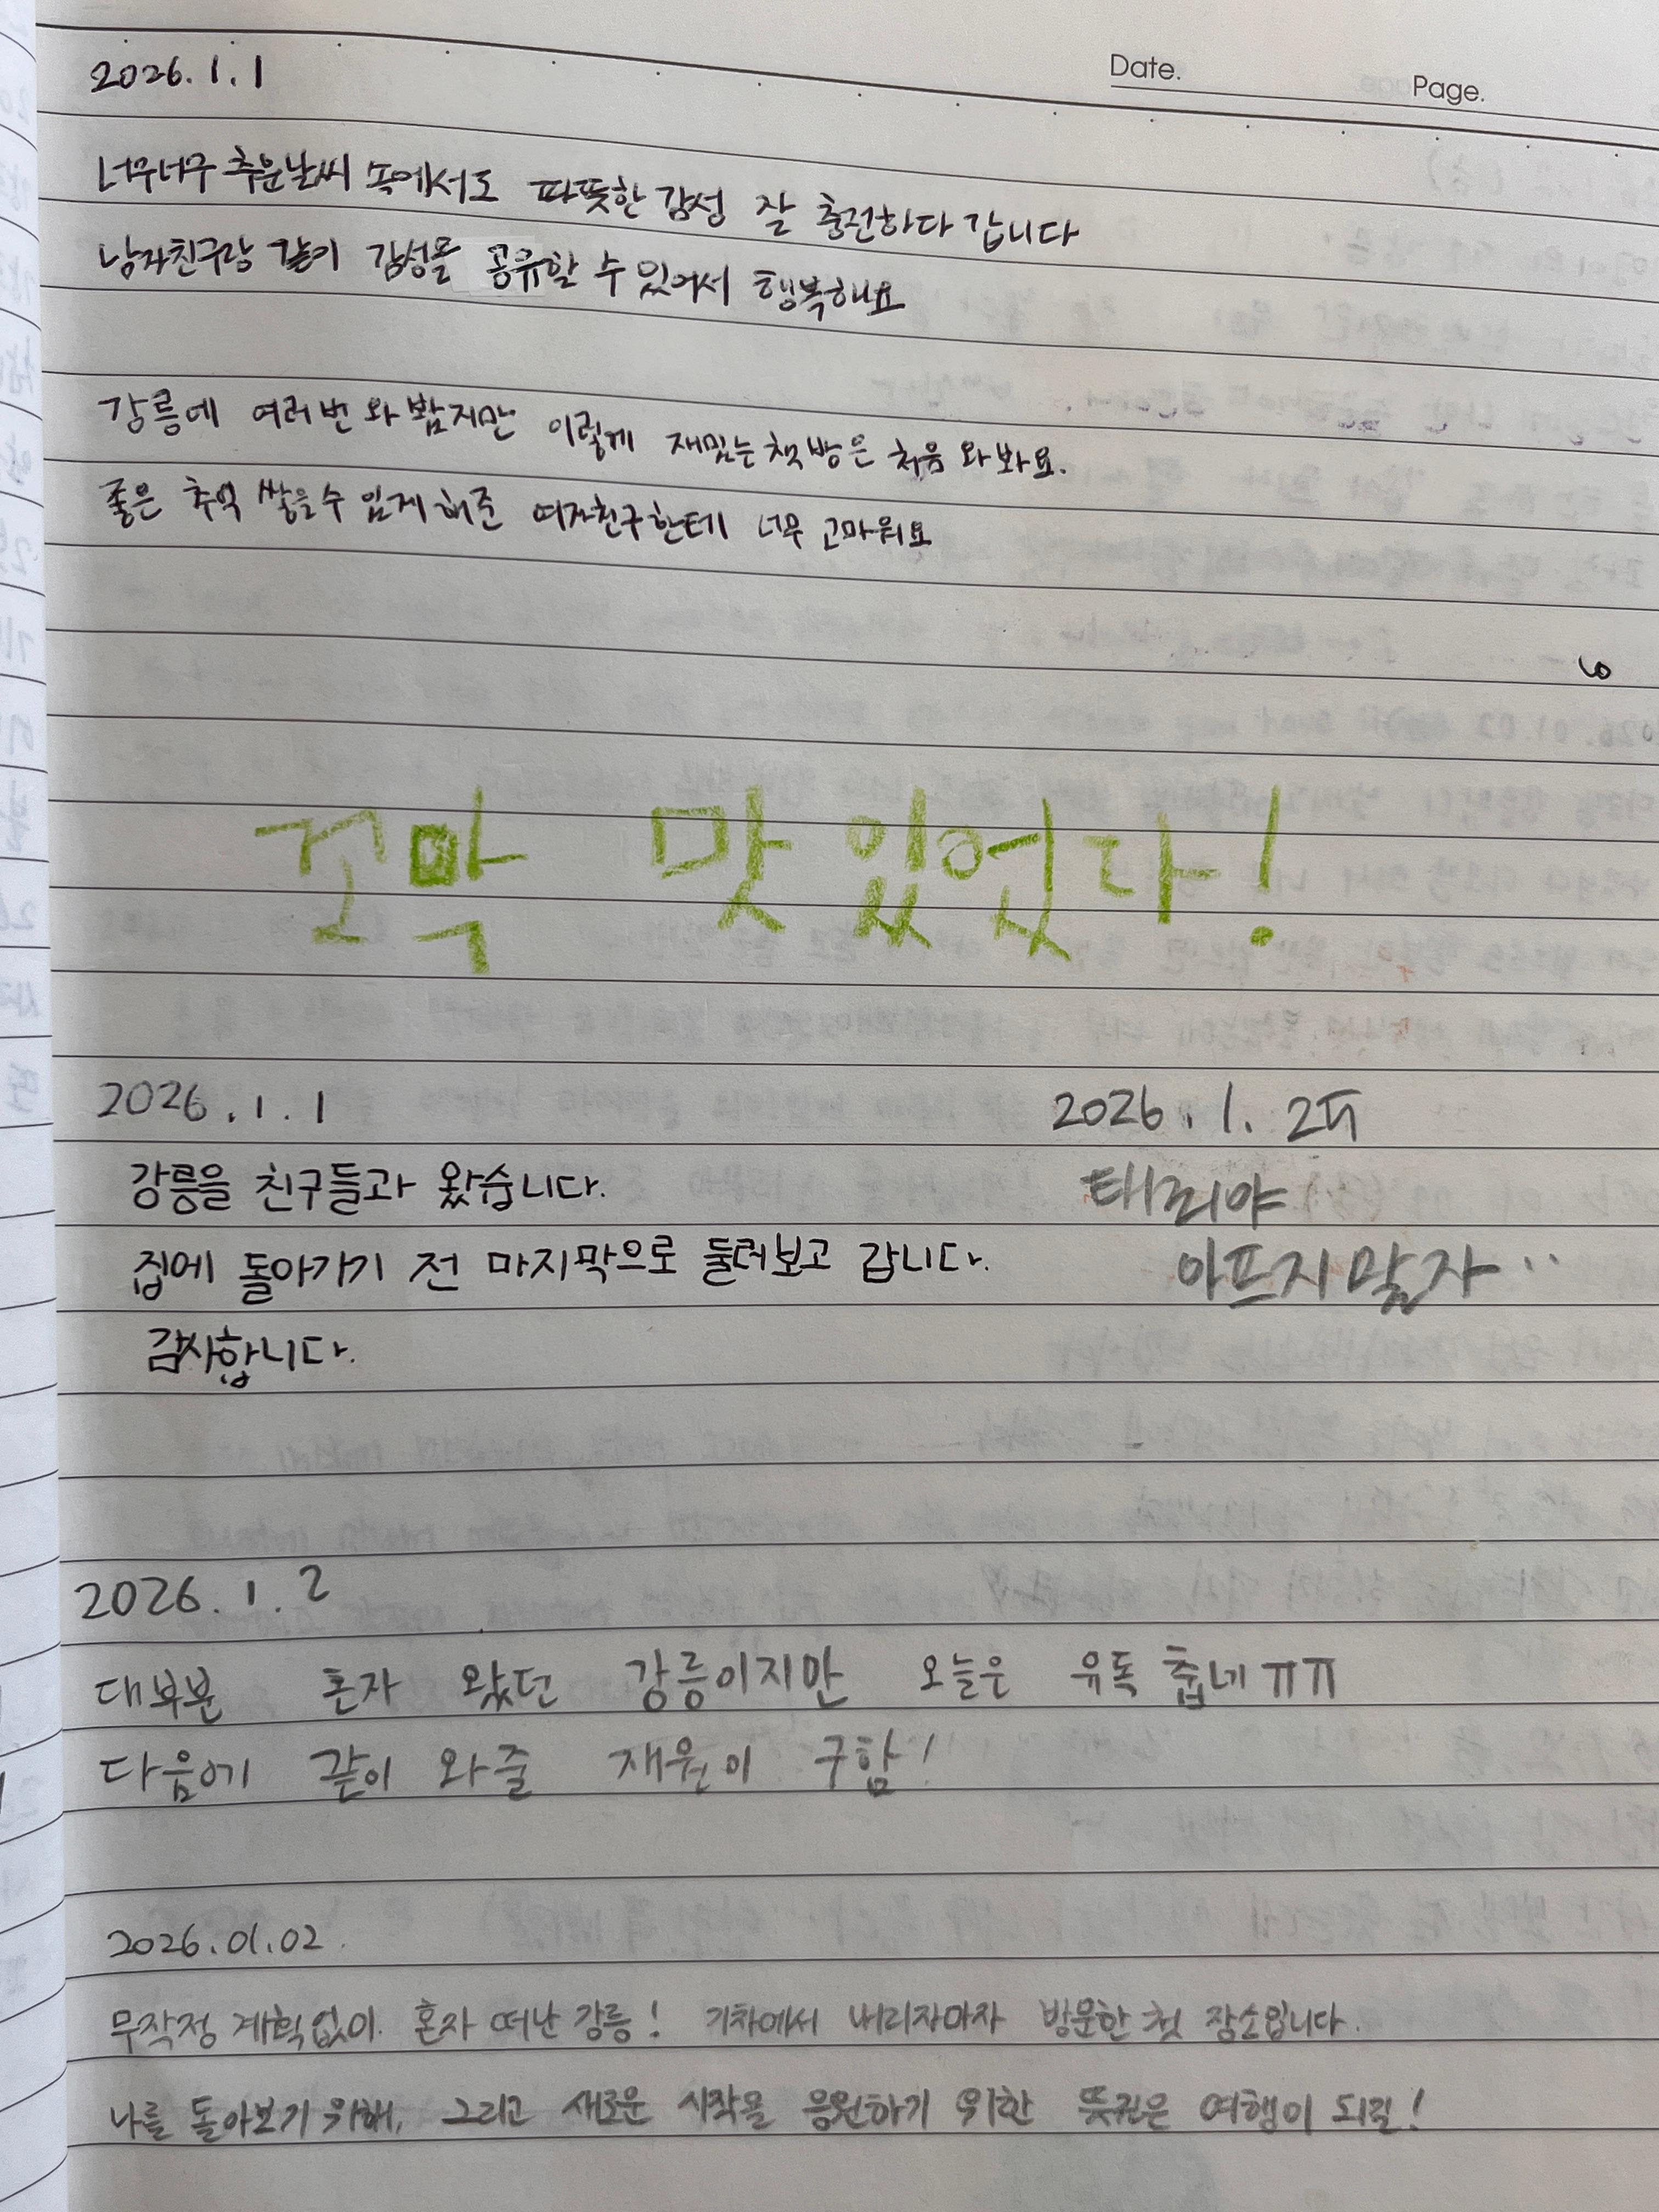 Date.
Page.
2026.1.1
너무너무 추운날씨 속에서도 따뜻한 감성 잘 충전하다 갑니다
남자친구랑 같이 감성을 공유할 수 있어서 행복해요
강릉에 여러번 와봤지만 이렇게 재밌는 책방은 처음 와봐요.
좋은 추억 쌓을수 있게 해준 여자친구한테 너무 고마워요
꼬막 맛있었다!
2026.1.1
강릉을 친구들과 왔습니다.
집에 돌아가기 전 마지막으로 둘러보고 갑니다.
감사합니다.
2026.1.2
태리야
아프지말자..
2026.1.2
대부분 혼자 왔던 강릉이지만 오늘은 유독 춥네ㅠㅠ
다음에 같이 와줄 재원이 구함!
2026.01.02.
무작정 계획없이 혼자 떠난 강릉! 기차에서 내리자마자 방문한 첫 장소입니다.
나를 돌아보기 위해, 그리고 새로운 시작을 응원하기 위한 뜻깊은 여행이 되길!